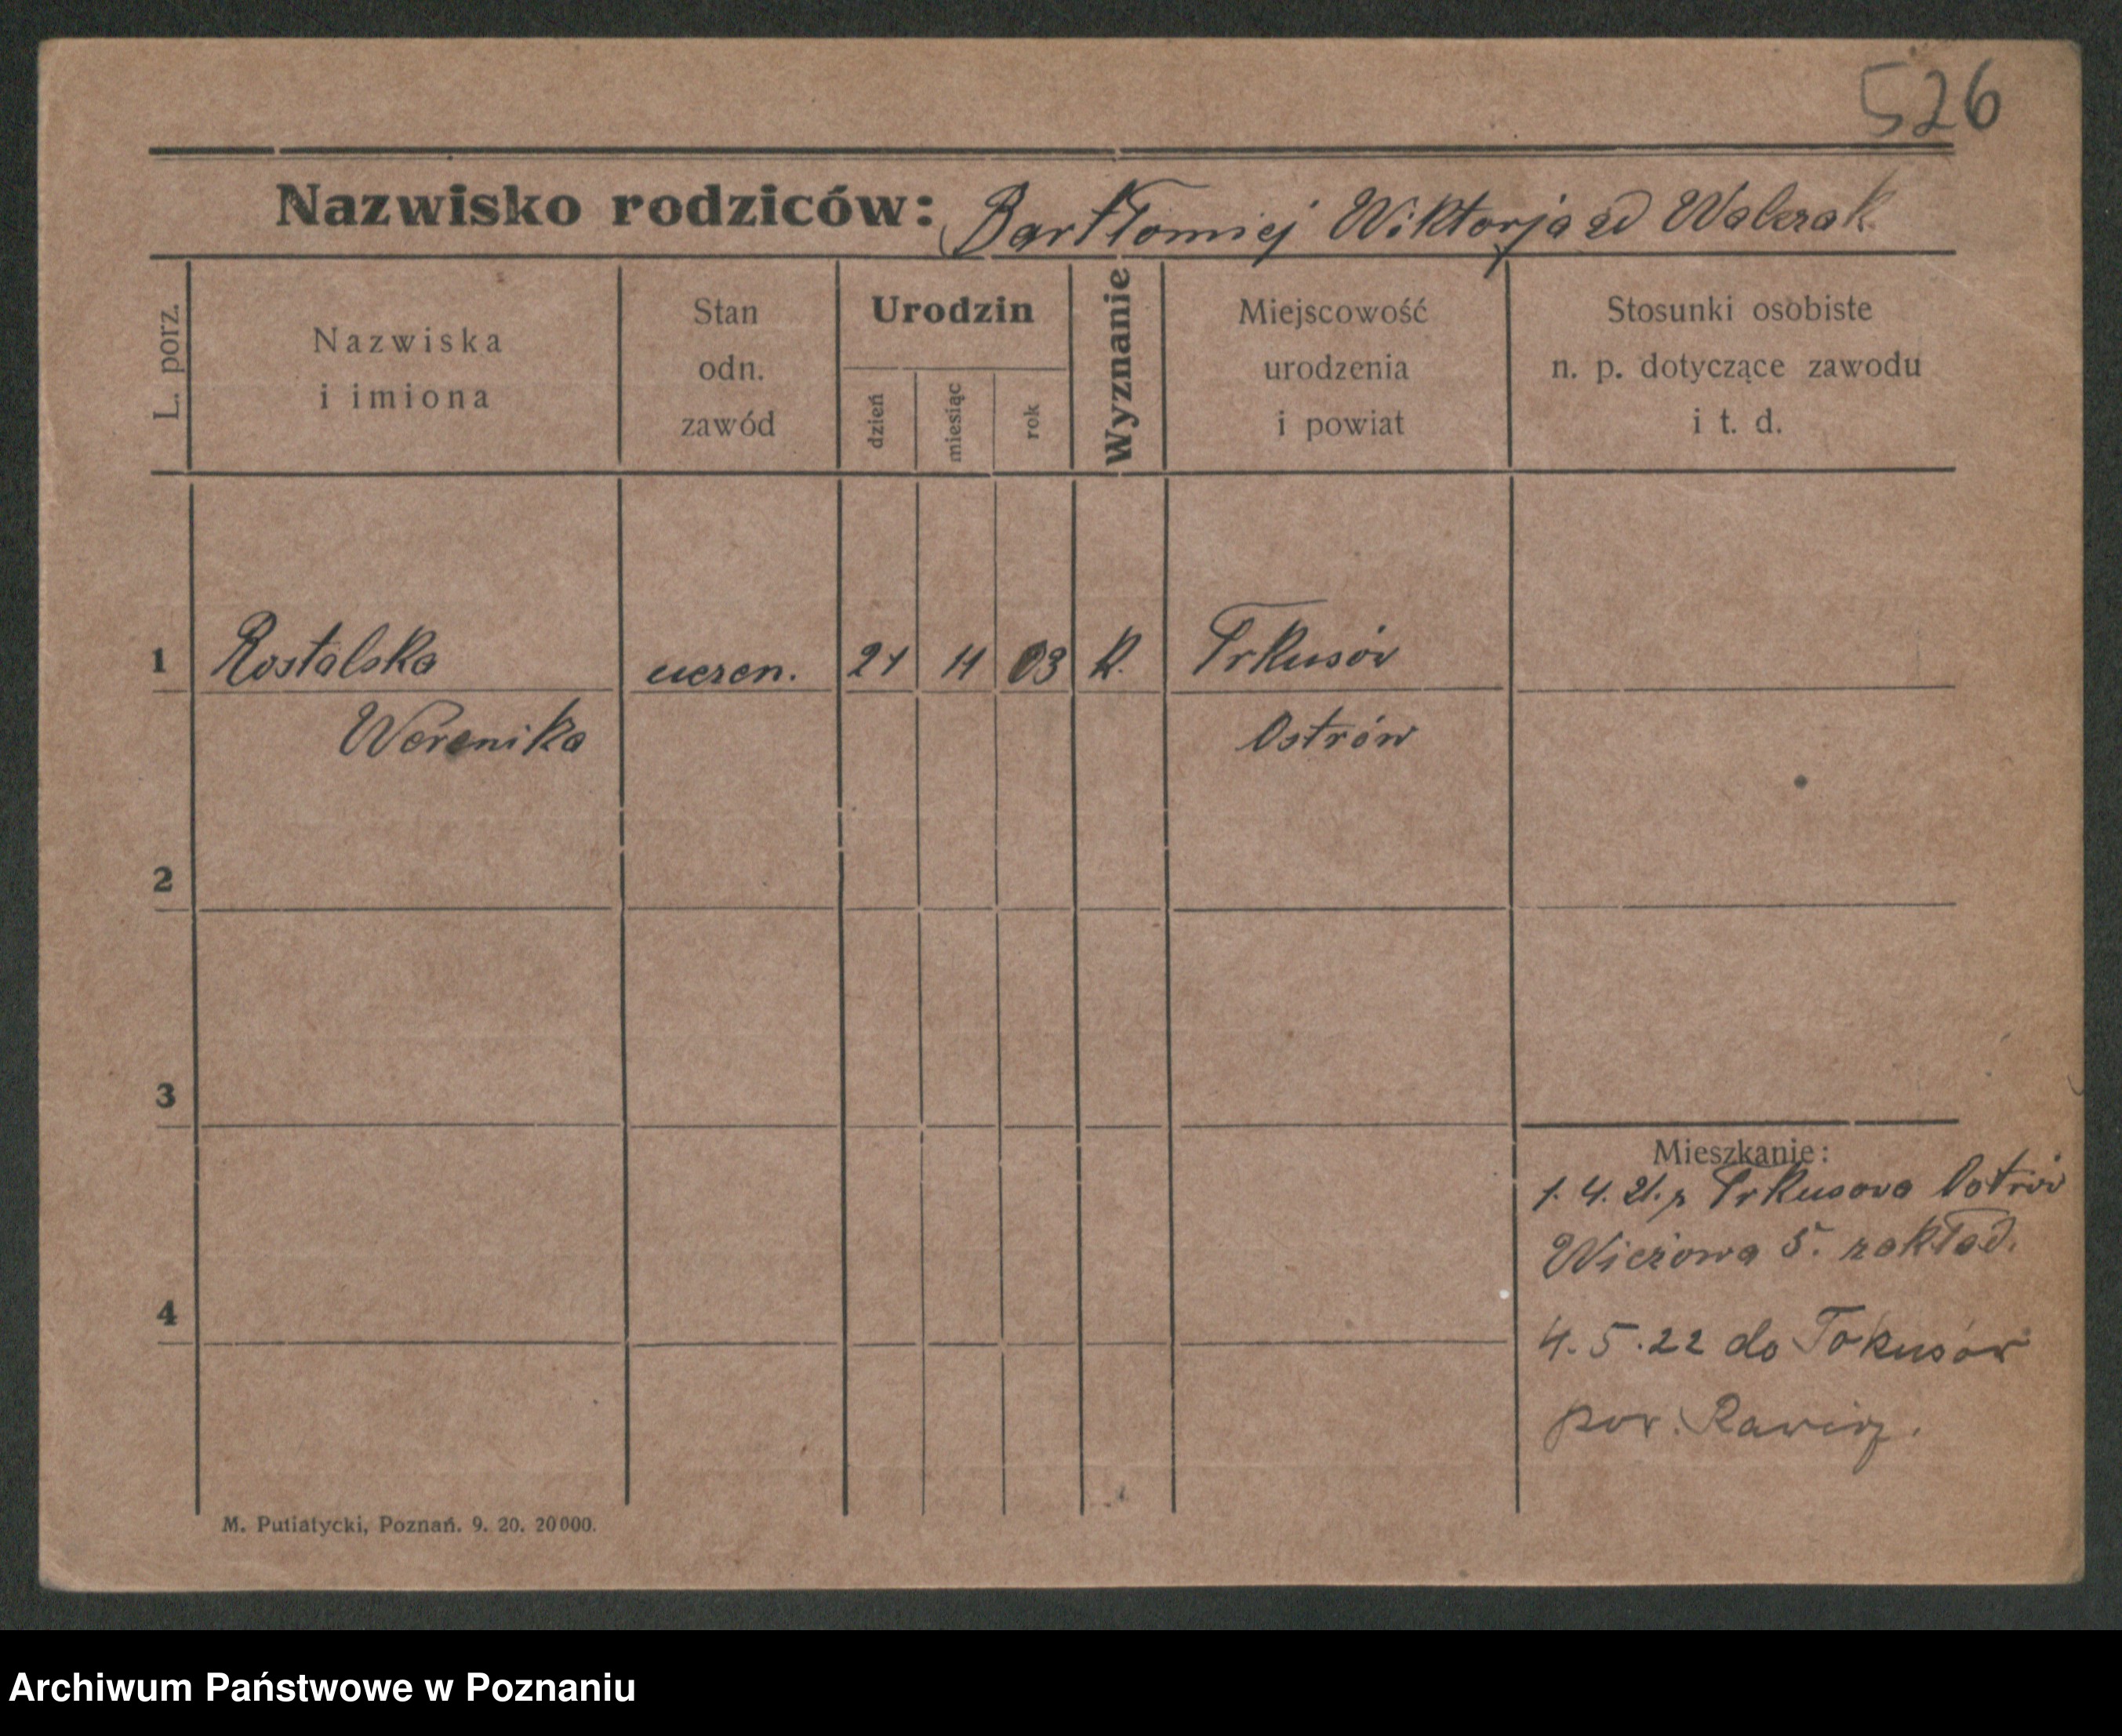 526
Nazwisko rodziców: Bartłomiej Wiktorja zd Walczak
L. porz.
Nazwiska
i imiona
Stan
odn.
zawód
Urodzin
dzień
miesiąc
rok
Wyznanie
Miejscowość
urodzenia
i powiat
Stosunki osobiste
n. p. dotyczące zawodu
i t. d.
1 Rostalska uczen. 21 11 03 K. Trkusów
Weronika Ostrów
2
3
Mieszkanie:
1. 4. 21. z Trkusowa Ostrów
Wieżowa 5. zakład.
4
4. 5. 22 do Tokusów
pow. Rawicz.
M. Putiatycki, Poznań. 9. 20. 20000.
Archiwum Państwowe w Poznaniu